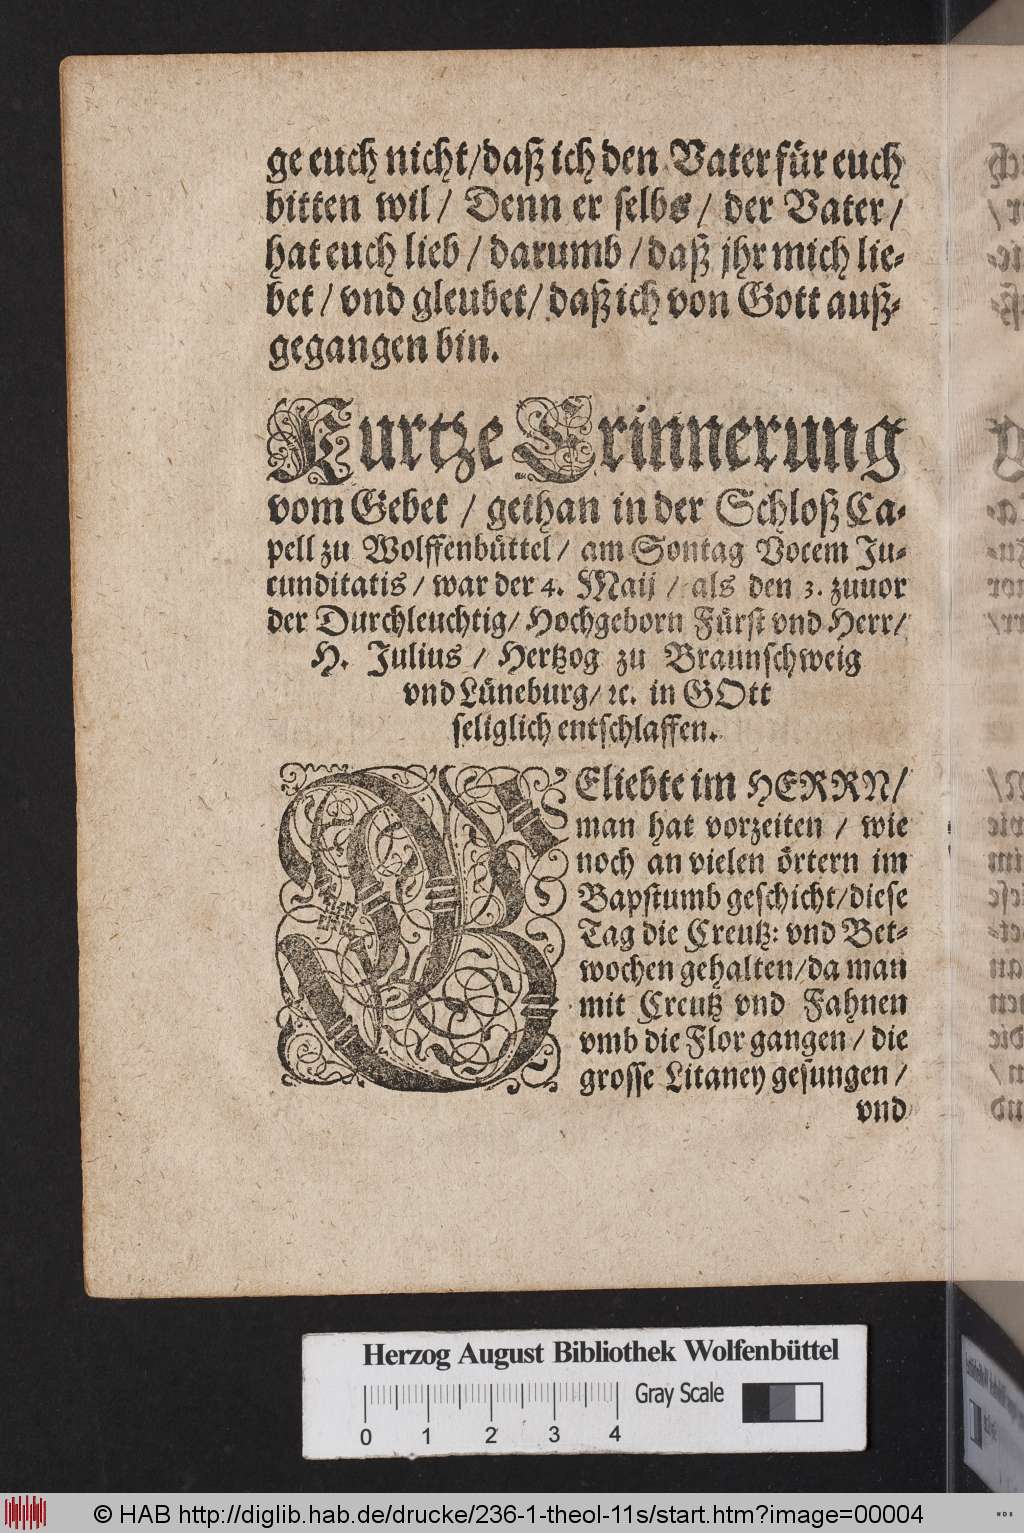 ge euch nicht/daß ich den Vater für euch
bitten wil / Denn er selbs / der Vater /
hat euch lieb / darumb / daß jhr mich lie-
bet / vnd gleubet/ daß ich von Gott auß-
gegangen bin.
Kurtze Erinnerung
vom Gebet / gethan in der Schloß Ca-
pell zu Wolffenbüttel / am Sontag Vocem Ju-
cunditatis / war der 4. Maij / als den 3. zuuor
der Durchleuchtig/ Hochgeborn Fürst vnd Herr/
H. Julius / Hertzog zu Braunschweig
vnd Lüneburg/ ꝛc. in GOtt
seliglich entschlaffen.
GEliebte im HERRN/
man hat vorzeiten / wie
noch an vielen örtern im
Bapstumb geschicht/diese
Tag die Creutz: vnd Bet-
wochen gehalten/da man
mit Creutz vnd Fahnen
vmb die Flor gangen / die
grosse Litaney gesungen /
vnd
Herzog August Bibliothek Wolfenbüttel
Gray Scale
0 1 2 3 4
© HAB http://diglib.hab.de/drucke/236-1-theol-11s/start.htm?image=00004